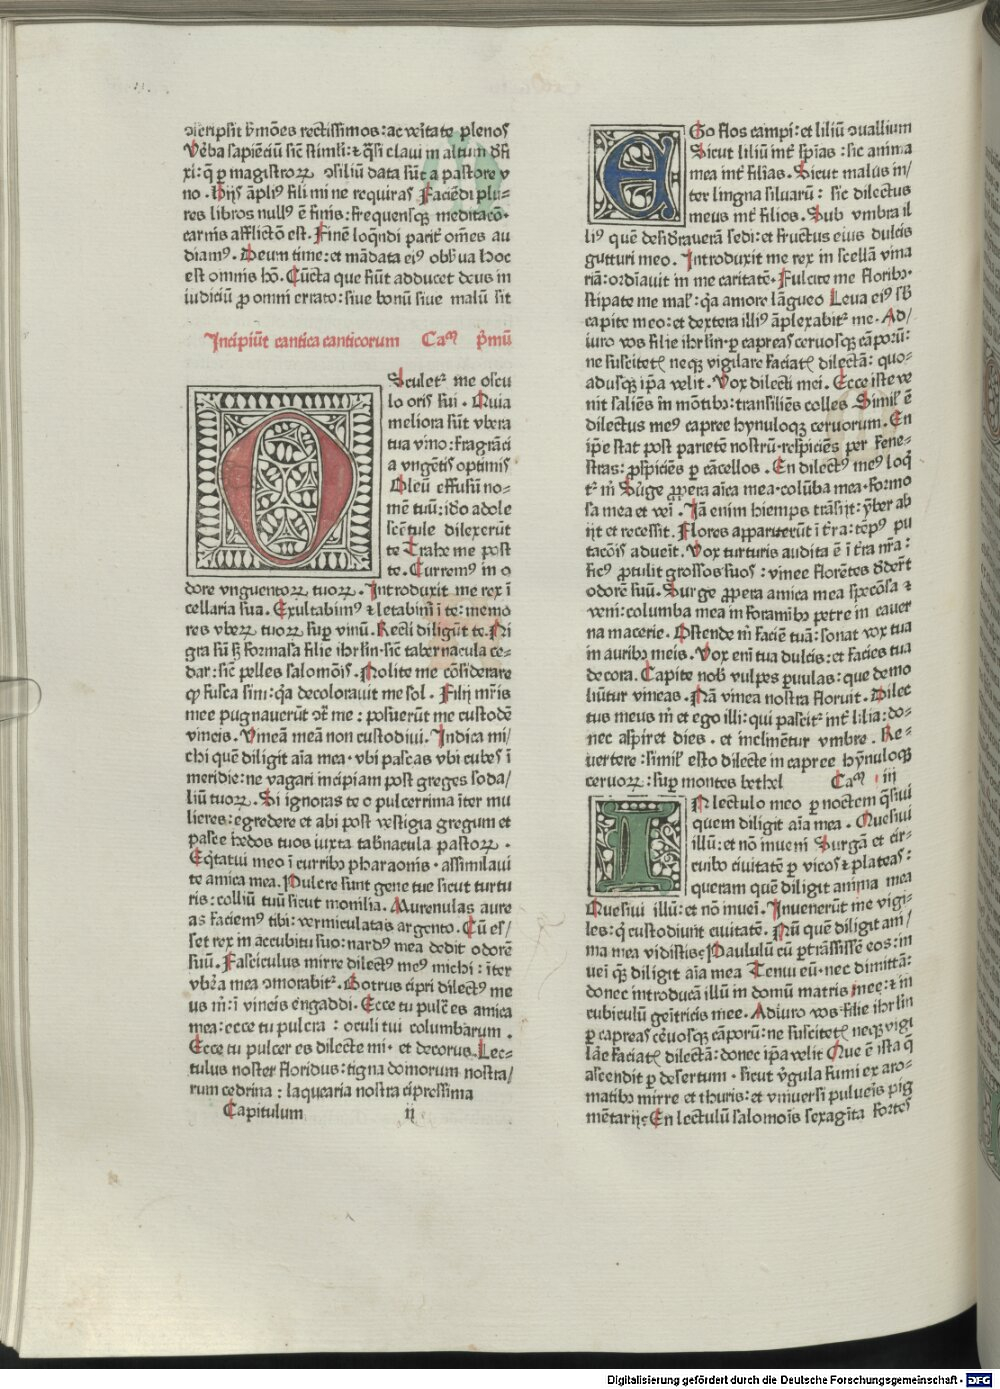 ↄscripsit s̄mōes rectissimos: ac veritate plenos
Verba sapiēciū sic̄ stimli: ⁊ q̄si claui in altum dēfi
xi: q̄ ꝑ magistroꝝ ↄsiliū data sūt a pastore v
no . Hijs āplius fili mi ne requiras Faciēdi plu=
res libros nullꝰ ē finis: frequensqꝫ meditacō·
carnis afflictō est. Finē loq̄ndi parit᷑ om̄es au
diamꝰ. Deum time: et mādata eiꝰ obẜua hoc
est omnis hō. Cūcta que fiūt adducet deus in
iudiciū ꝓ omni errato: siue bonū siue malū sit
Incipiūt cantica canticorum Caᵐ p̄mū
OSculet᷑ me oscu
lo oris sui . Quia
meliora sūt vbera
tua vino: fragrāci
a vngētis optimis
Oleū effusū no=
mē tuū: ido adole
scētule dilexerūt
te Trahe me post
te. Curremꝰ in o
dore vnguentoꝝ tuoꝝ. Introduxit me rex ī
cellaria sua. Exultabimꝰ ⁊ letabimꝰ ī te: memo
res vbeꝝ tuoꝝ suꝑ vinū. Recti diligūt te. Ni
gra sū sꝫ formosa filie ihrlm· sic̄ tabernacula ce=
dar: sic̄ pelles salomōis. Nolite me cōsiderare
qꝫ fusca sim: q̄a decolorauit me sol. Filij mr̄is
mee pugnauerūt ↄt᷑ me: posuerūt me custodē
vineis. Vineā meā non custodiui. Indica mi/
chi quē diligit aīa mea· vbi pascas vbi cubes ī
meridie: ne vagari incipiam post greges soda/
liū tuoꝝ. Si ignoras te o pulcerrima īter mu
lieres: egredere et abi post vestigia gregum et
pasce hedos tuos iuxta tab̄nacula pastoꝝ.
Eq̄tatui meo ī curribꝫ pharaonis· assimilaui
te amica mea. Pulcre sunt gene tue sicut turtu
ris: colliū tuū sicut monilia. Murenulas aure
as faciemꝰ tibi: vermiculatas argento. Cū es/
set rex in accubitu suo: nardꝰ mea dedit odorē
suū. Fasciculus mirre dilectꝰ meꝰ michi: īter
vb̄a mea ↄmorabit᷑. Botrus cipri dilectꝰ me
us m̄: ī vineis engaddi. Ecce tu pulc̄ es amica
mea: ecce tu pulcra : oculi tui columbarum .
Ecce tu pulcer es dilecte mi· et decorus. Lec=
tulus noster floridus: tigna domorum nostra/
rum cedrina: laquearia nostra cipressina
Capitulum ij
EGo flos campi: et liliū ↄuallium
Sicut liliū int᷑ spīas: sic amica
mea int᷑ filias. Sicut malus in/
ter lingna siluarū: sic dilectus
meus int᷑ filios. Sub vmbra il
liꝰ quē desidꝭrauerā sedi: et fructus eius dulcis
gutturi meo. Introduxit me rex in scellā vina
riā: ordīauit in me caritatē. Fulcite me floribꝫ·
stipate me malis: q̄a amore lāgueo Leua eiꝰ sb̄
capite meo: et dextera illiꝰ āplexabit᷑ me. Ad/
iuro vos filie ihrlm· ꝑ capreas ceruosqꝫ cāporū:
ne suscitetꝭ neqꝫ vigilare faciatꝭ dilectā: quo=
adusqꝫ ip̄a velit. Vox dilecti mei. Ecce iste ve
nit saliēs in mōtibꝫ: transiliēs colles Similꝭ ē
dilectus meꝰ capree hynuloqꝫ ceruorum. En
ip̄e stat post parietē nostrū· respiciēs per fene=
stras: ꝓspiciēs ꝑ cācellos. En dilectꝰ meꝰ loq̄
t᷑ m̄ Surge ꝓpera aīca mea· colūba mea· formo
sa mea et vei᷑. Iā enim hiemps trāsijt: ymber ab
ijt et recessit. Flores apparuerūt ī t̄ra: tēpꝰ pu
tacōis aduēit. Vox turturis audita ē ī t̄ra nr̄a:
ficꝰ ꝓtulit grossos suos: vinee florētes dedert᷑
odorē suū. Surge ꝓpera amica mea specōsa ⁊
veni: columba mea in foramībꝫ petre in cauer
na macerie. Ostende m̄ faciē tuā: sonat vox tua
in auribꝫ meis. Vox eni᷑ tua dulcis: et facies tua
decora. Capite nobꝭ vulpes ꝑuulas: que demo
liūtur vineas. Nā vinea nostra floruit. Dilec
tus meus m̄ et ego illi: qui pascit᷑ int᷑ lilia: do=
nec aspiret dies. et inclinētur vmbre. Re=
uertere: similꝭ esto dilecte mi capree hynuloqꝫ
ceruoꝝ: suꝑ montes bethel Caᵐ iij
IN lectulo meo ꝑ noctem q̄siui
quem diligit aīa mea. Quesiui
illū: et nō inueni Surgā et cir=
cuibo ciuitatē ꝑ vicos ⁊ plateas:
queram quē diligit anima mea
Quesiui illū: et nō inuei᷑. Inuenerūt me vigi=
les: q̄ custodiunt ciuitatē. Nū quē diligit ani/
ma mea vidistis? Paululū cū ꝑtrāssissē eos: in
uei᷑ quē diligit aīa mea Tenui eū· nec dimittā:
donec introducā illū in domū matris mee: ⁊ in
cubiculū geitricis mee. Adiuro vos filie ihrlm
ꝑ capreas c̄uosqꝫ cāporū: ne suscitetꝭ neqꝫ vigi
lare faciatꝭ dilectā: donec ip̄a velit Que ē ista q̄
ascendit ꝑ desertum· sicut v̄gula fumi ex aro=
matibꝫ mirre et thuris: et vniuersi pulueris pig
mētarij? En lectulū salomōis sexagīta fortes
Digitalisierung gefördert durch die Deutsche Forschungsgemeinschaft - DFG